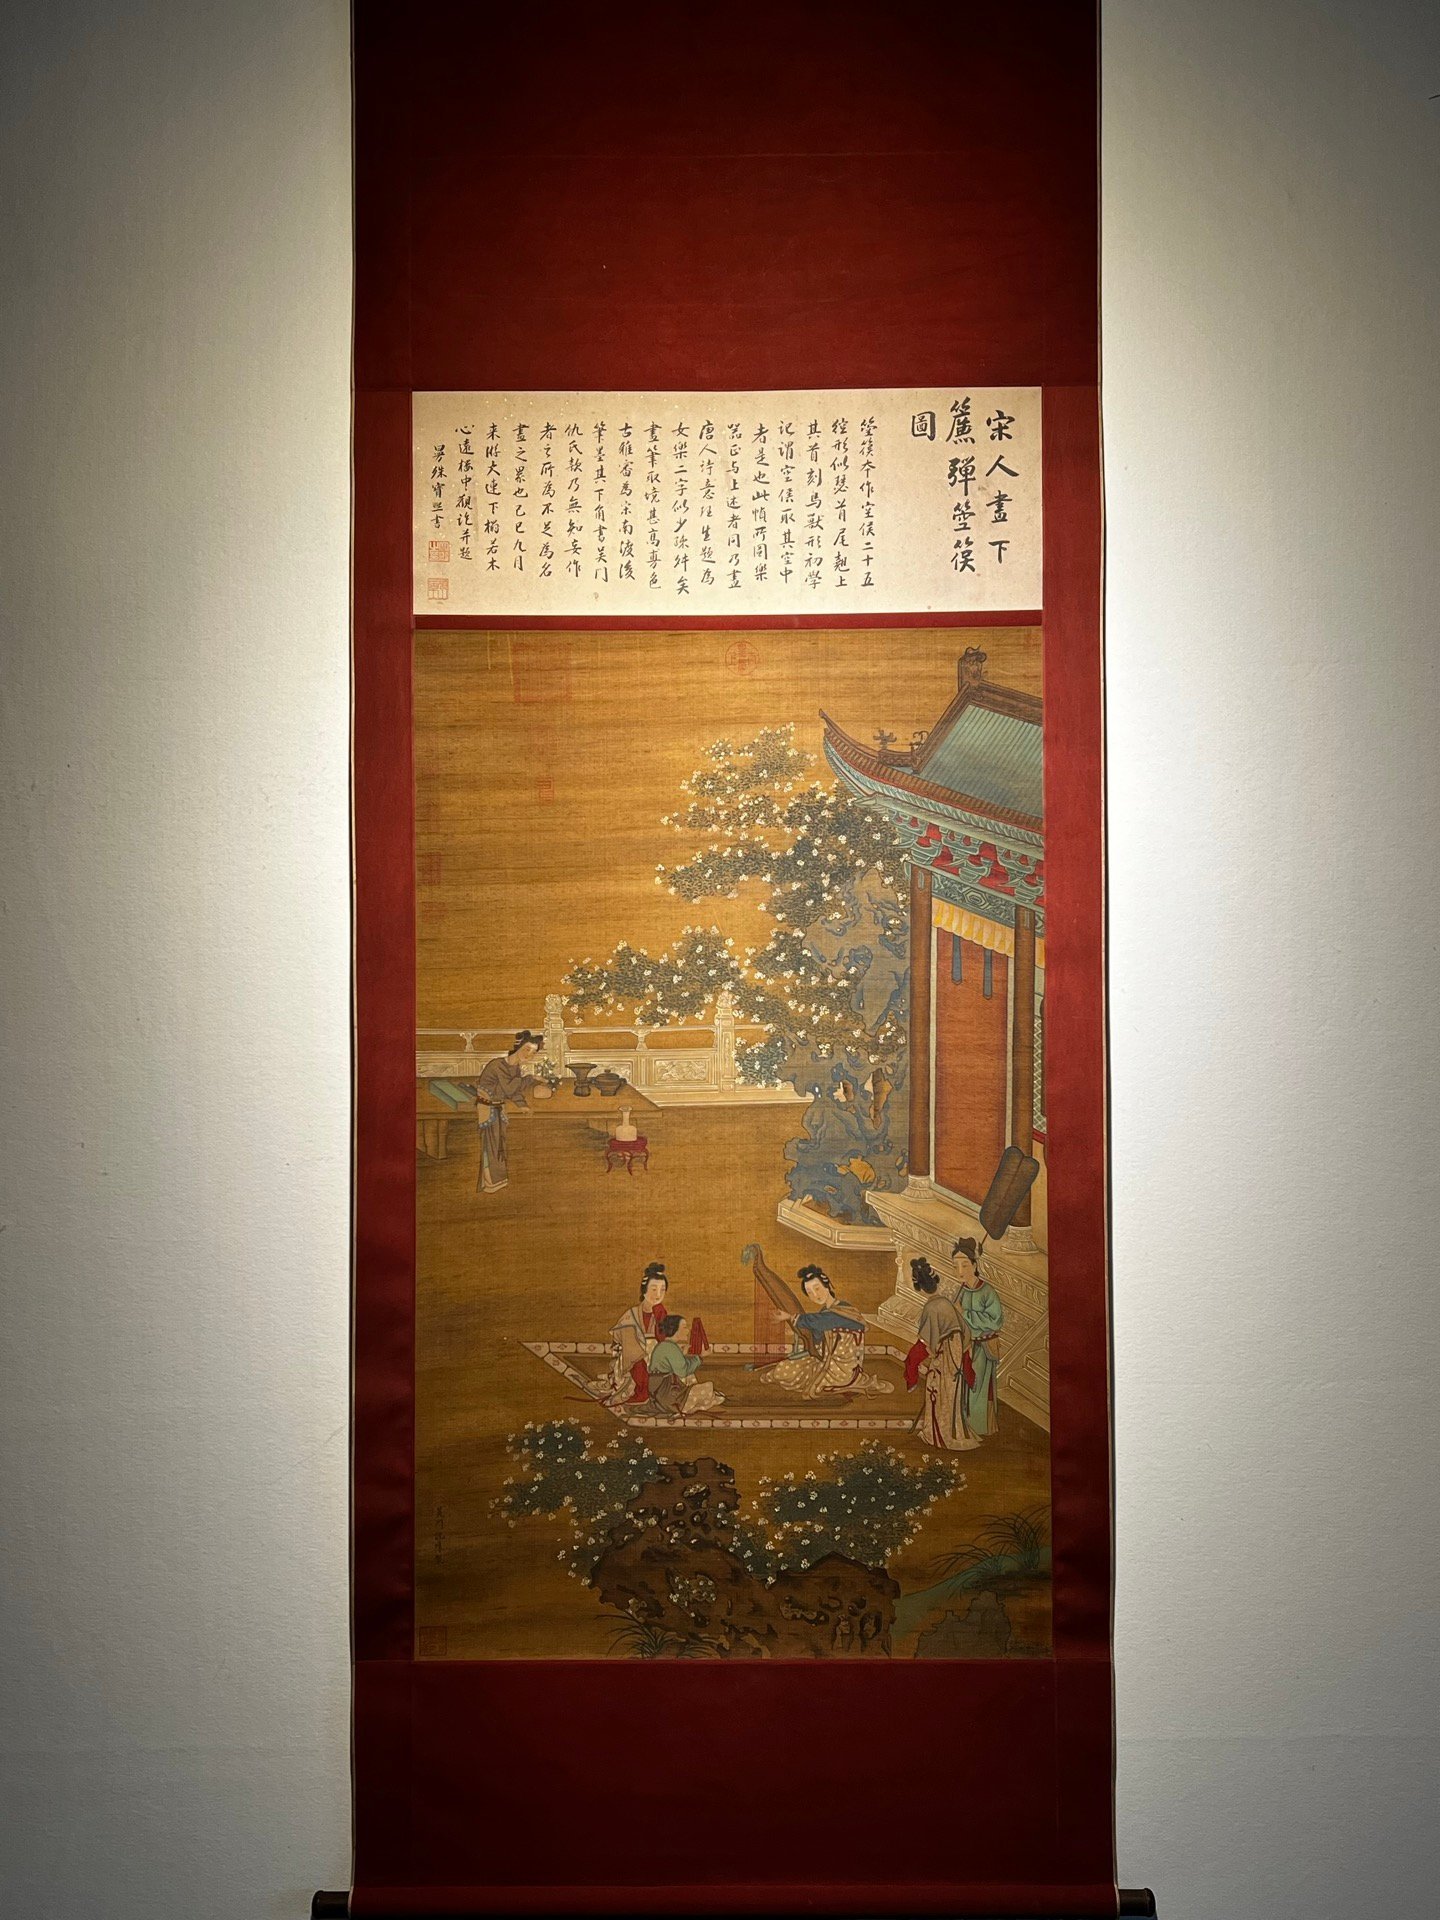 宋人畫下
簾彈箜篌
圖
箜篌本作空侯二十五
絃形似瑟首尾翹上
其首刻鳥獸形初學
記謂空侯取其空中
者是也此幀所圖樂
器正与上述者同乃畫
唐人詩意
題為
女樂二字似少疎舛矣
畫筆取境甚高專色
古雅審為宋南渡後
筆墨其下角書吴门
仇氏款乃無知妄作
者之所為不足為名
畫之累也己巳九月
來游大連下榻若木
心遠樓中觀訖并題
景珠寶熙書